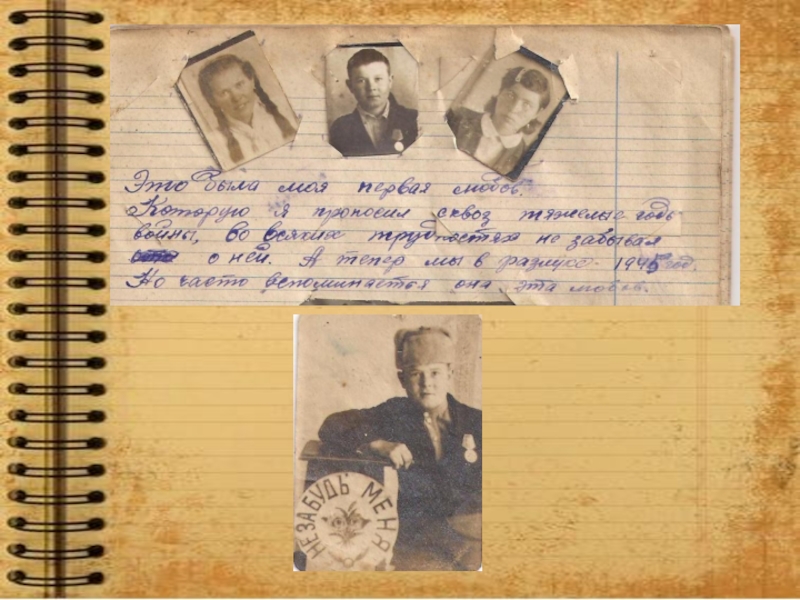 Это была моя первая любов.
Которую я проносил сквоз тяжелые годы
войны, во всяких трудностях не забывал
о ней. А тепер мы в разлуке. 1945 год.
Но часто вспоминается она эта любов.
НЕЗАБУДЬ МЕНЯ